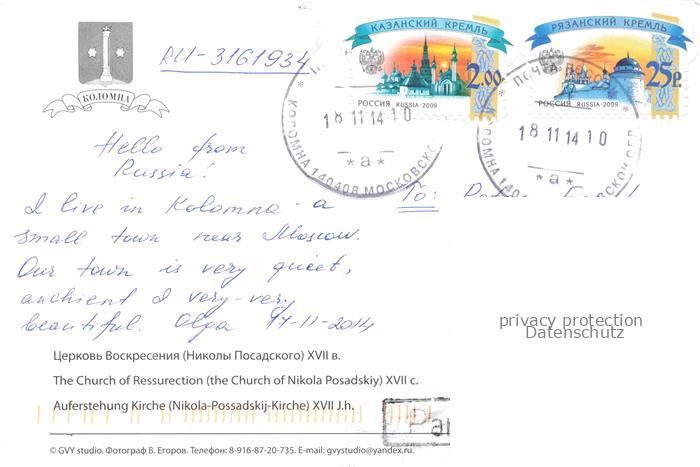 КОЛОМНА
RU-3161934
КАЗАНСКИЙ КРЕМЛЬ
2.00
РОССИЯ RUSSIA·2009
РЯЗАНСКИЙ КРЕМЛЬ
25р.
РОССИЯ RUSSIA·2009
18 11 14 10
* а *
КОЛОМНА 140408 МОСКОВСКО
ПОЧТА
18 11 14 10
* а *
КОЛОМНА 140
Hello from
Russia!
I live in Kolomna - a
small town near Moscow.
Our town is very quiet,
anchient & very-very
beautiful. Olga 17-11-2014
To:
privacy protection
Datenschutz
Церковь Воскресения (Николы Посадского) XVII в.
The Church of Ressurection (the Church of Nikola Posadskiy) XVII c.
Auferstehung Kirche (Nikola-Possadskij-Kirche) XVII J.h.
Par
© GVY studio. Фотограф В. Егоров. Телефон: 8-916-87-20-735. E-mail: gvystudio@yandex.ru.